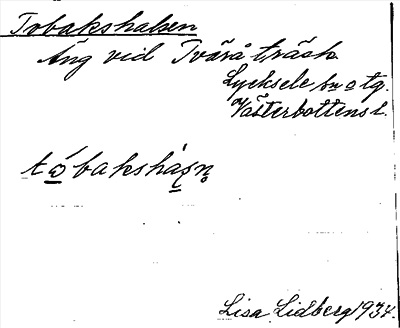 Tobakshalsen
Äng vid Tvärå träsk
Lycksele sn o tg.
Västerbottens l.
tώbakshàsn̥
Lisa Lidberg 1934.